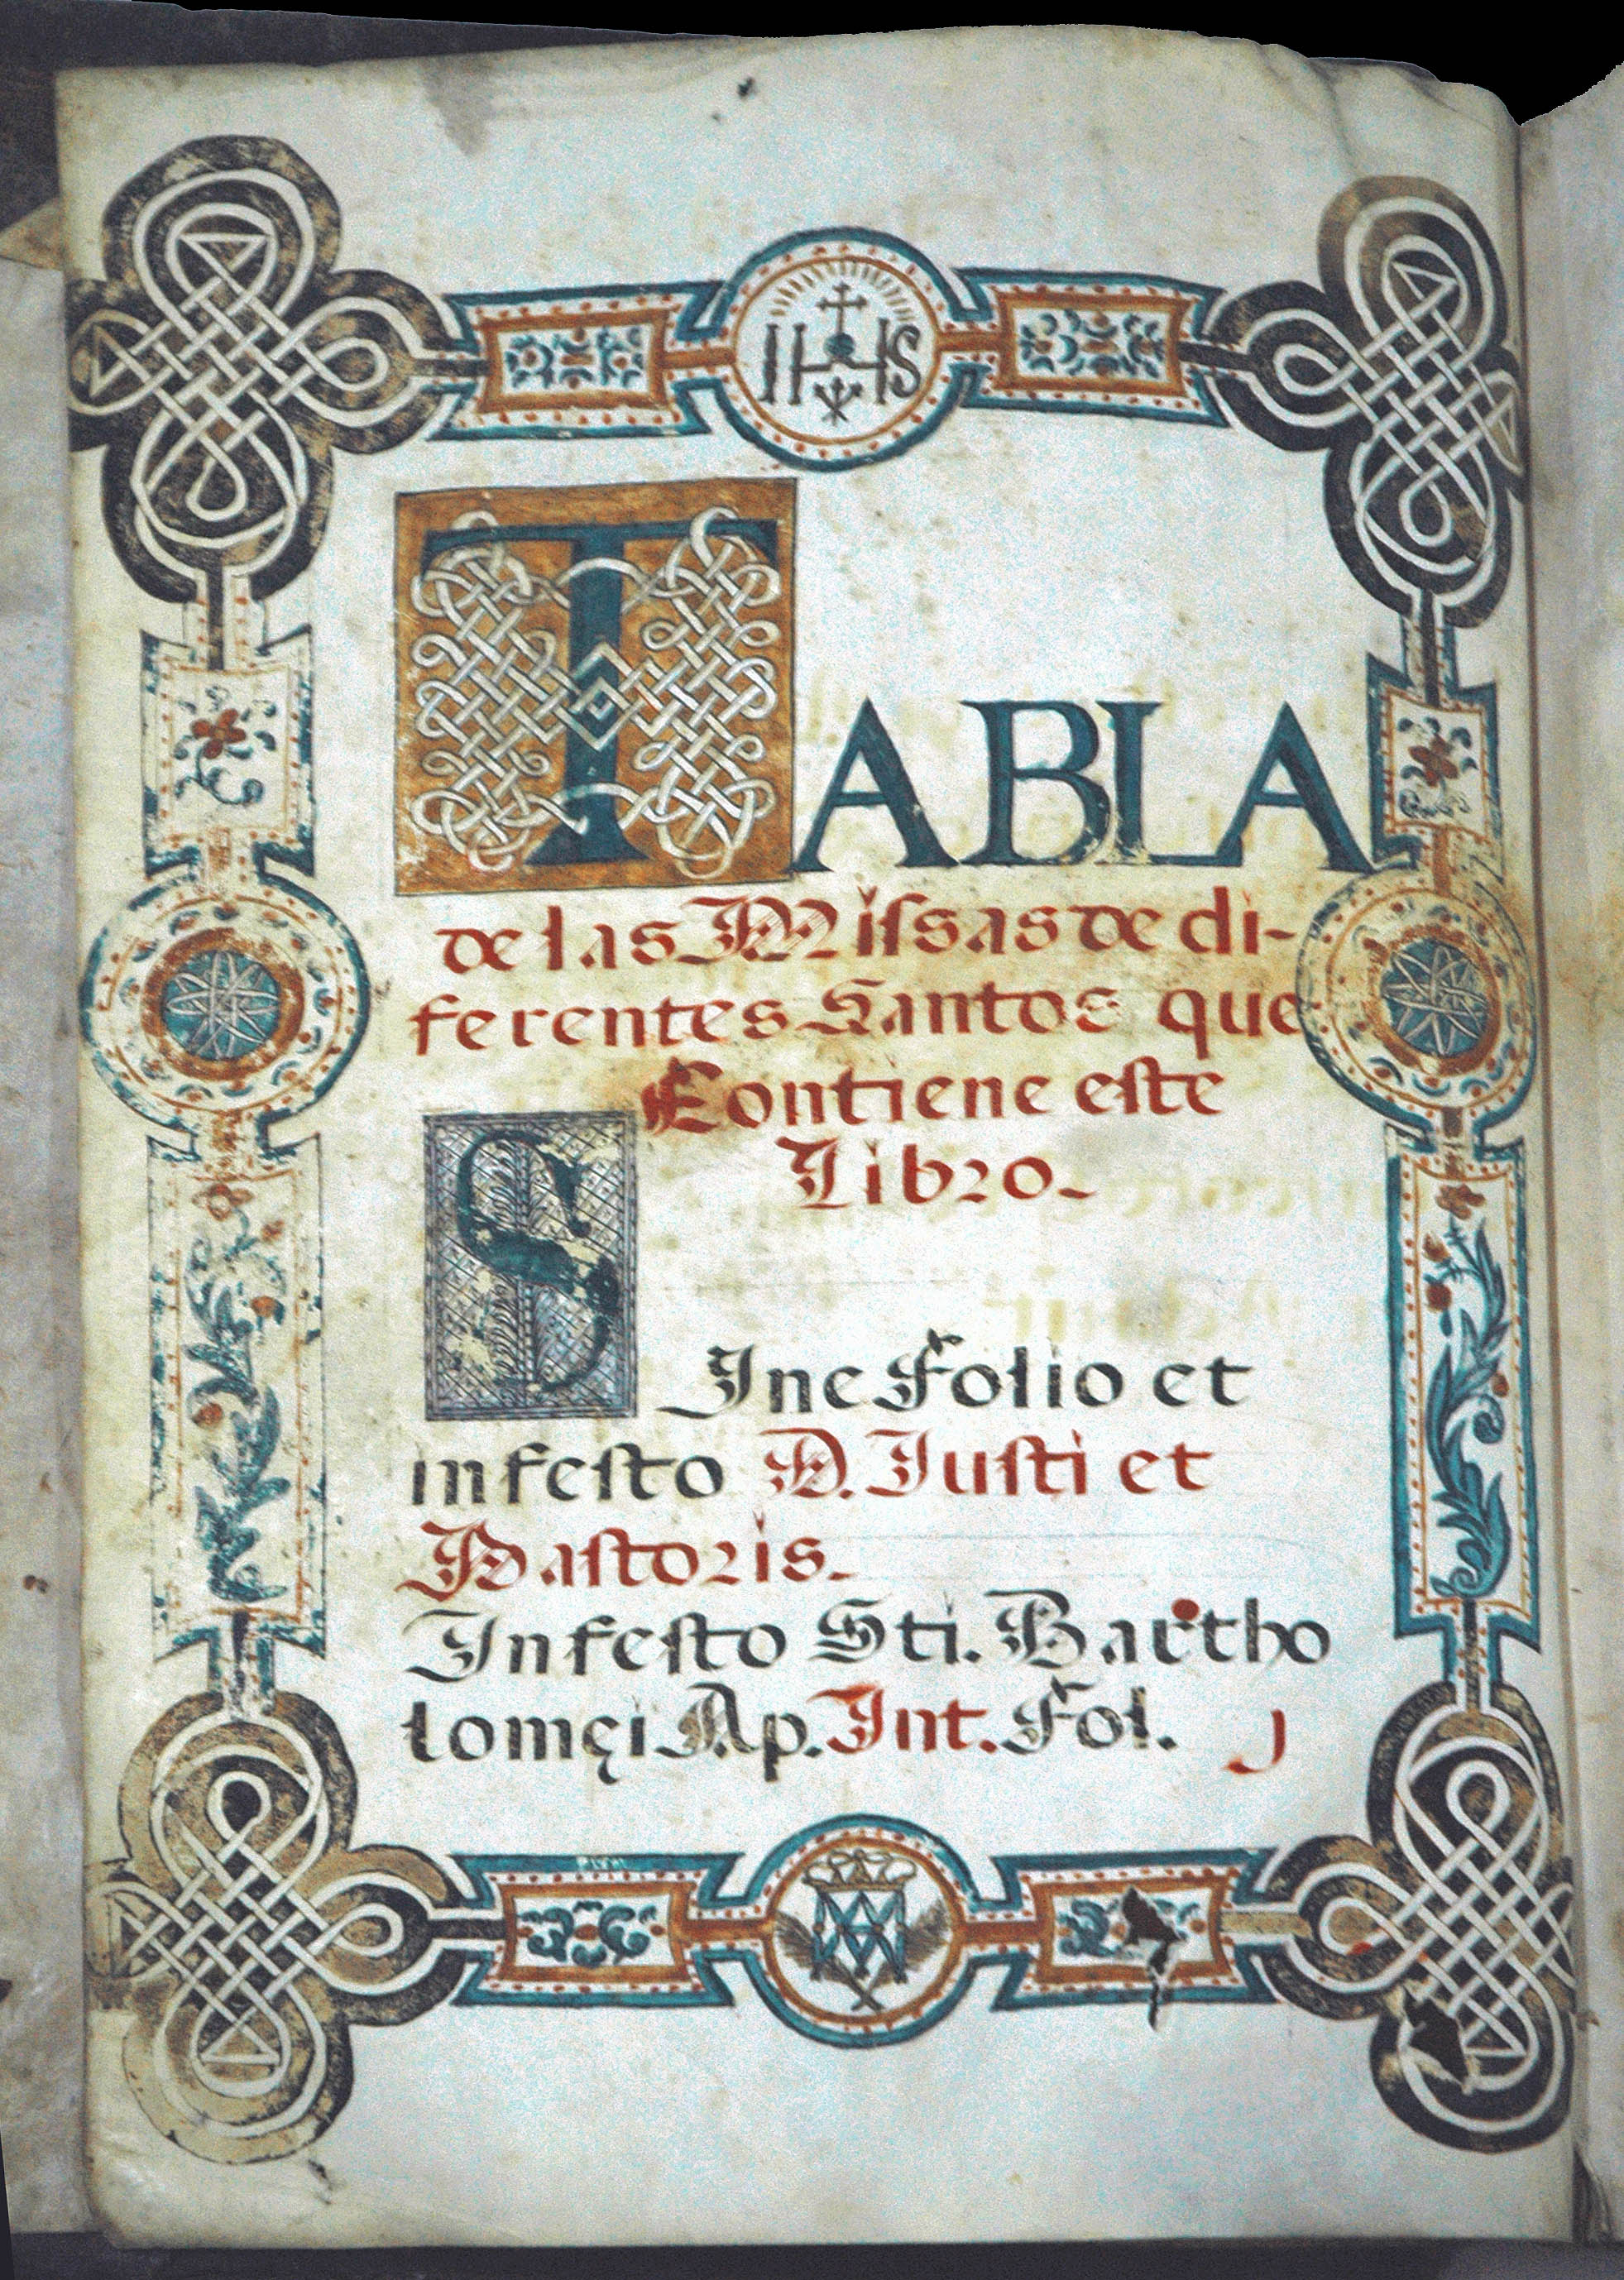 IHS
TABLA
de las Missas de di-
ferentes Santos que
Contiene este
Libro-
SIne Folio et
in festo D. Iusti et
Pastoris-
In festo Sti. Bartho
lomęi Ap. Int. Fol. j